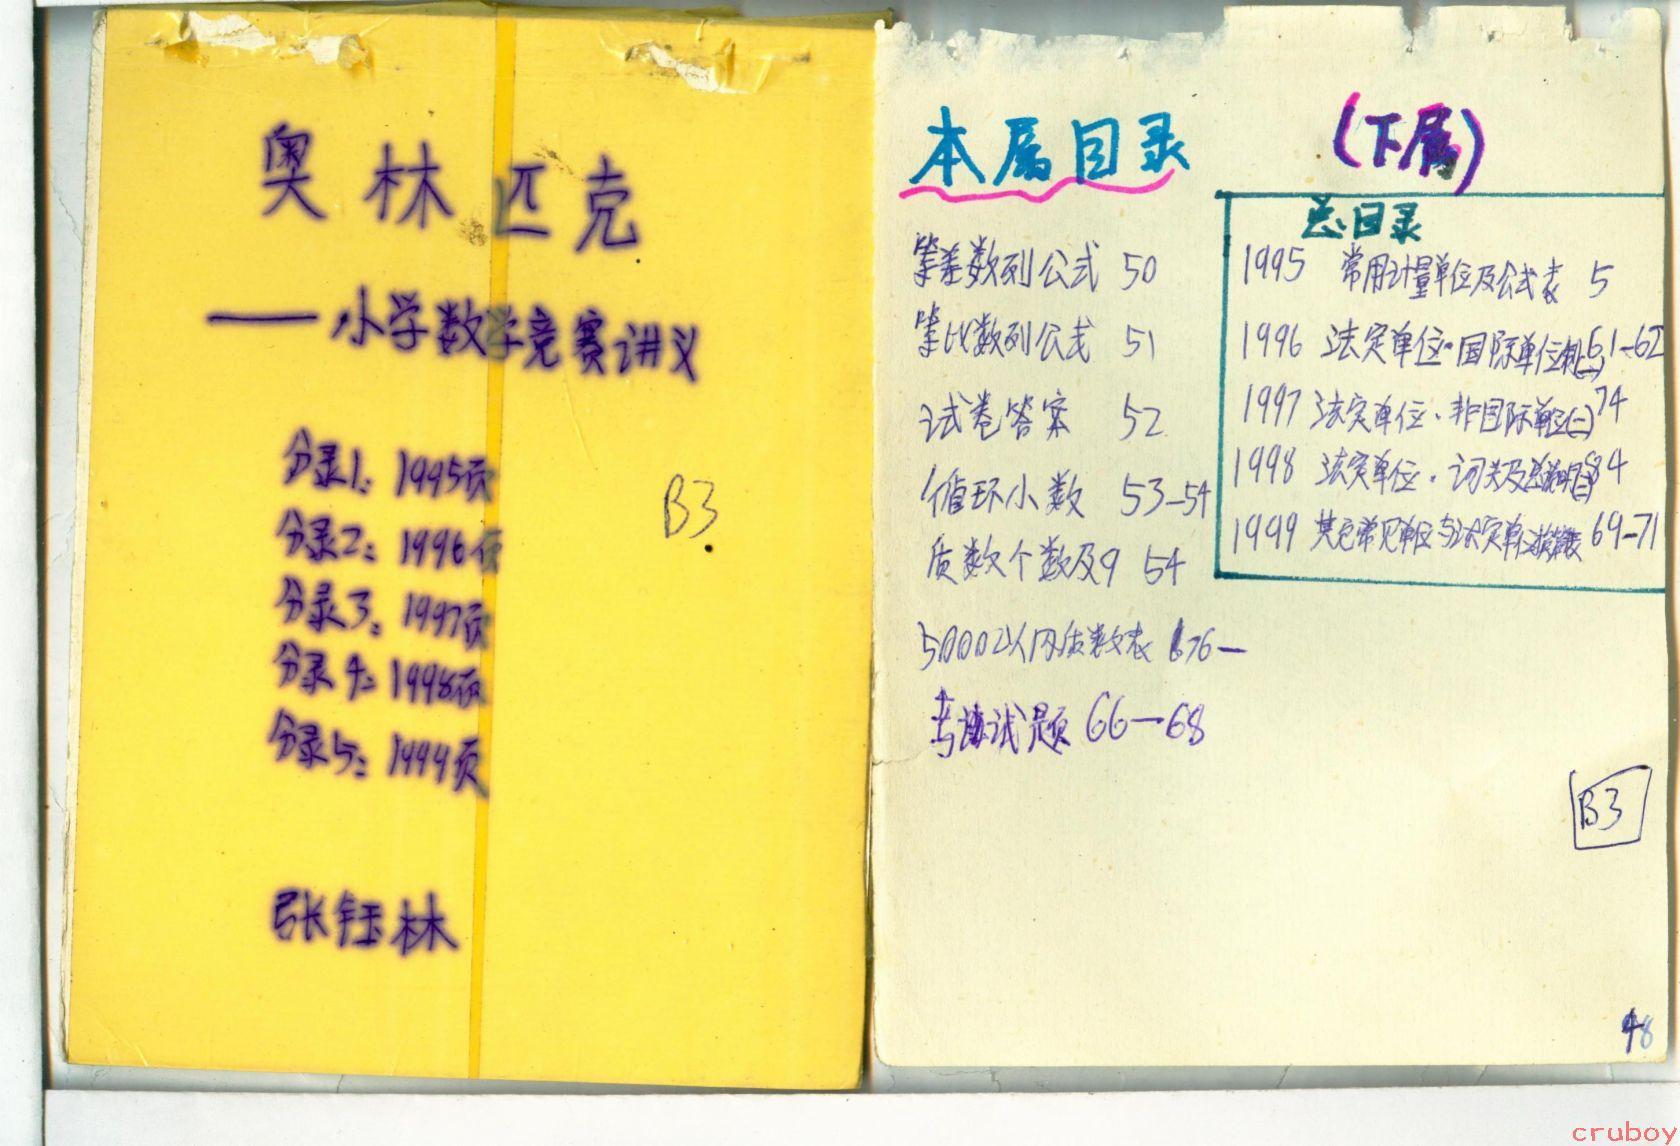 奥林匹克
——小学数学竞赛讲义
分录1：1995页
分录2：1996页
分录3：1997页
分录4：1998页
分录5：1999页
B3
张钰林
本属目录
(下属)
等差数列公式 50
等比数列公式 51
试卷答案 52
循环小数 53-54
质数个数及9 54
5000以内质数表 76—
考试题 66—68
总目录
1995 常用计量单位及公式表 5
1996 法定单位·国际单位制(一) 61-62
1997 法定单位·非国际单位(二) 74
1998 法定单位·词头及 84
1999 其它常见单位与法定单位换算表 69-71
B3
48
cruboy